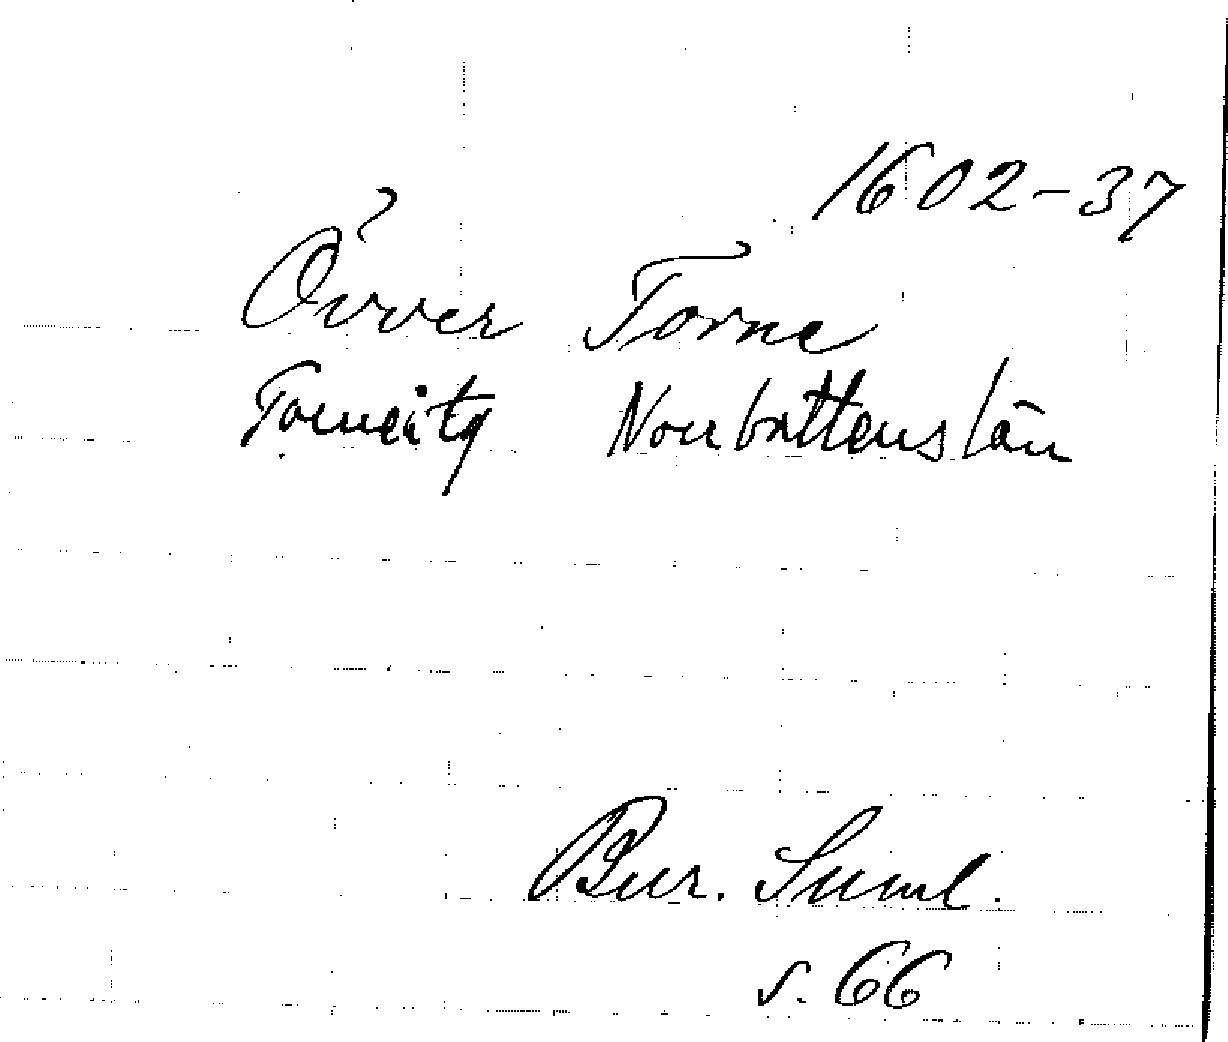 1602-37
Övver Torne
Torneå tg Norrbottens län
Bur. Suml.
s. 66